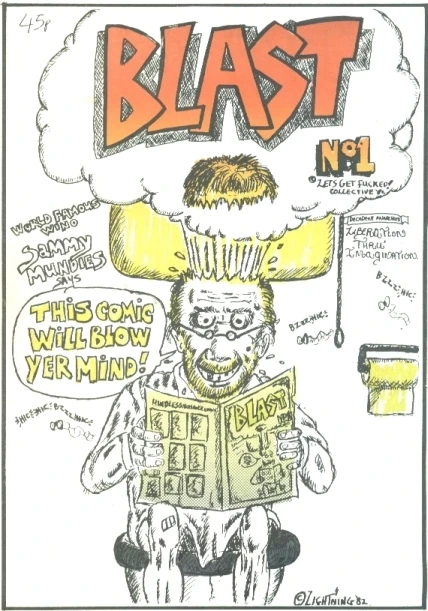 45p
BLAST
No1
© LETS GET FUCKED!
COLLECTIVE
WORLD FAMOUS
WINO
SAMMY
MUNDLES
SAYS
THIS COMIC
WILL BLOW
YER MIND!
DECADENT ANARCHIST
LIBERATION
THRU
IMAGINATION
BZZZ:HIC:
BZZZ:HIC:
:HIC:HIC: BZZZ:HIC:
BLAST
No1
© LIGHTNING '82